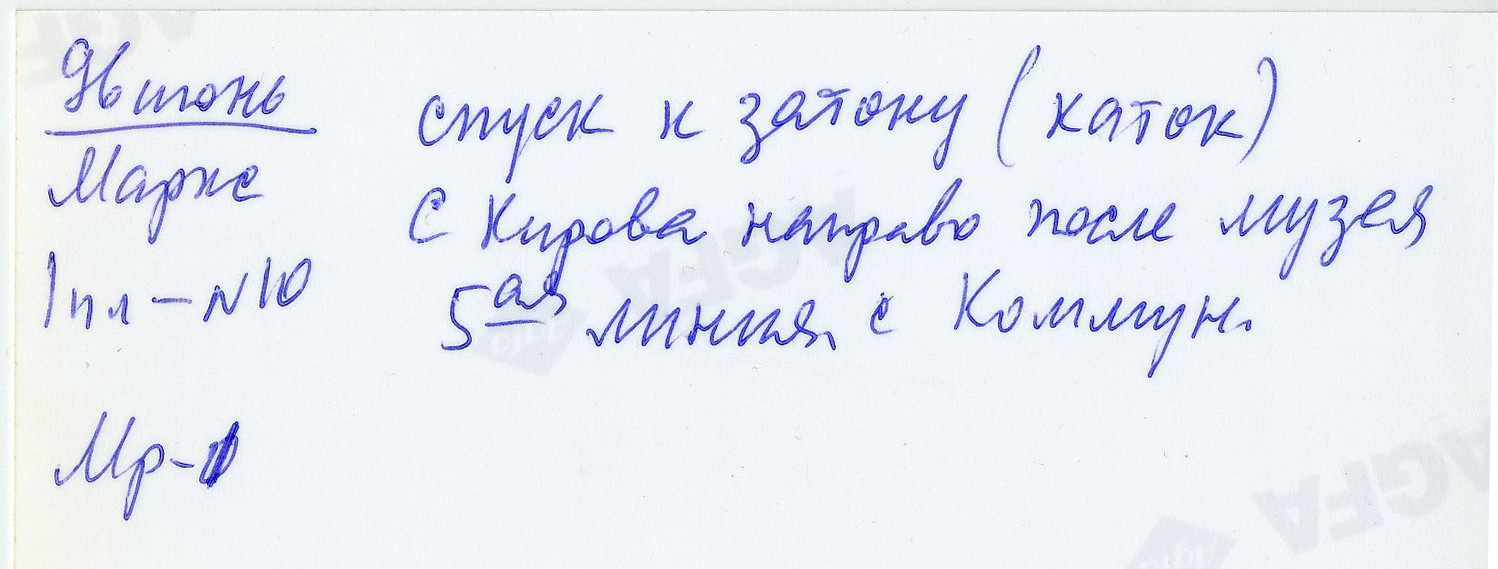 96 июнь
Маркс
1 пл – N10
Мр-1
спуск к затону (каток)
С Кирова направо после музея
5ая линия, с Коммун.
AGFA
AGFA